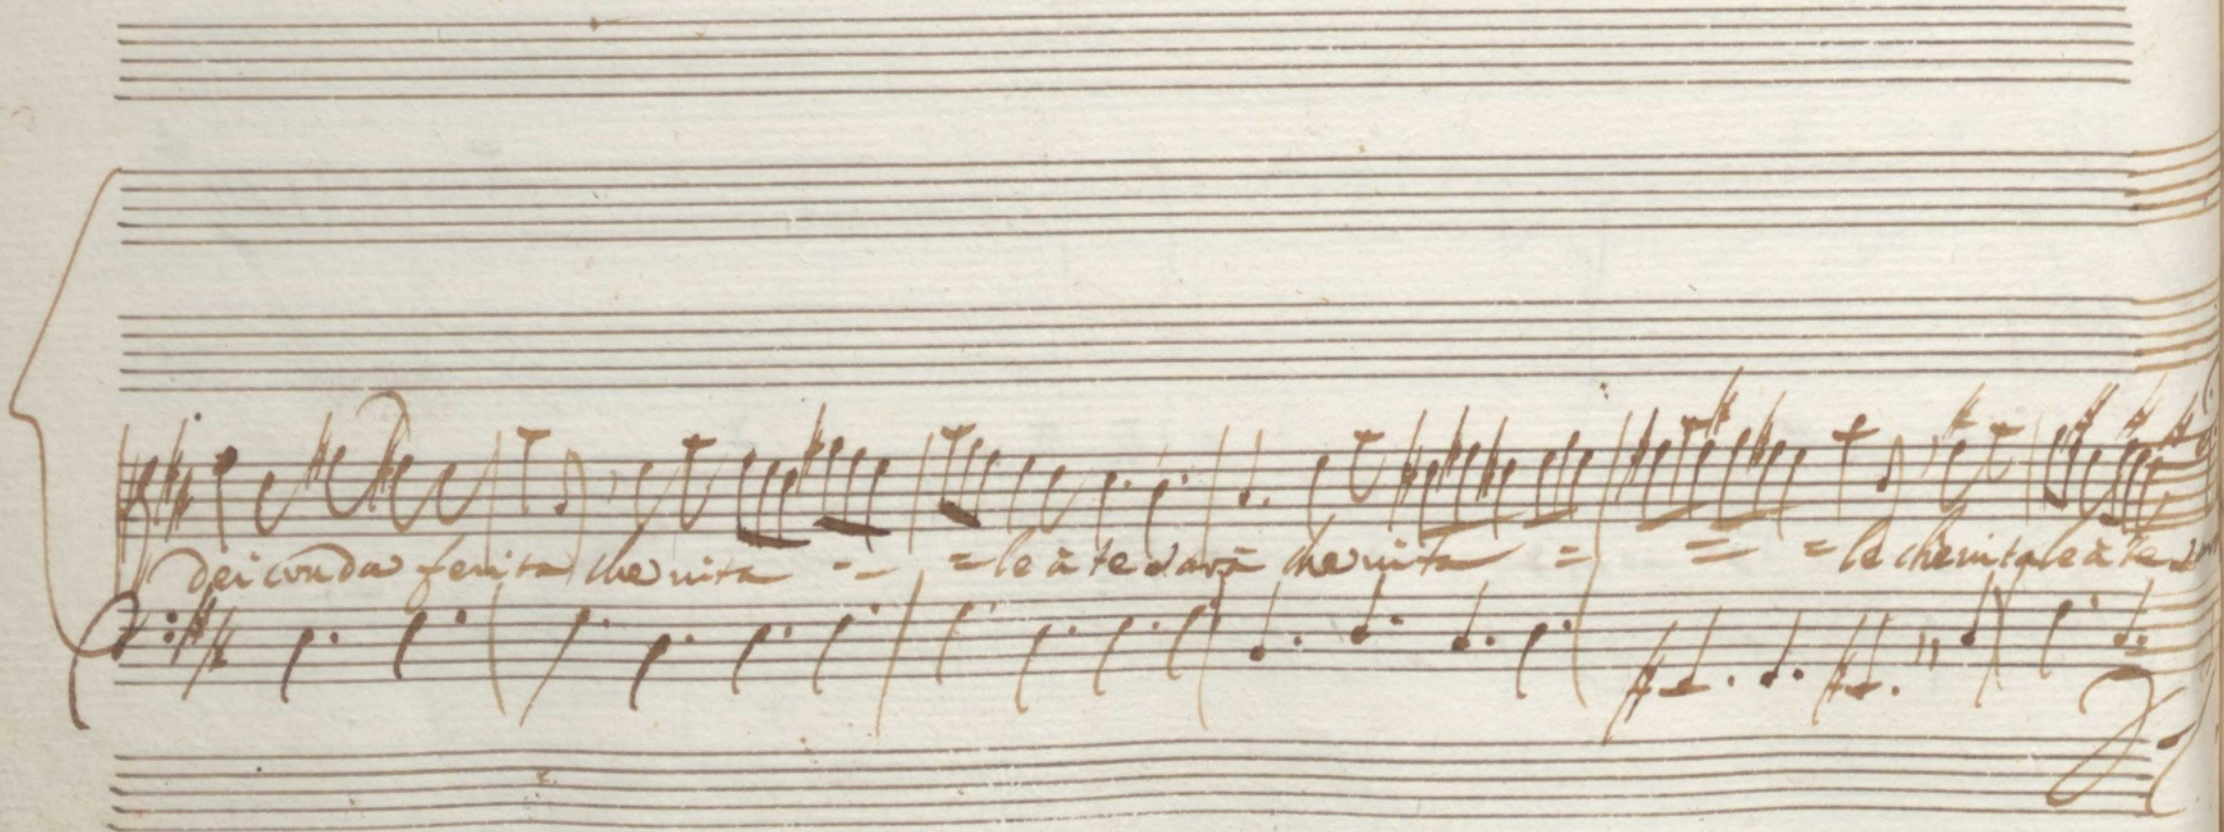 dei conda ferita che vita - - = le à te darà che vita = = = le che vita le à te